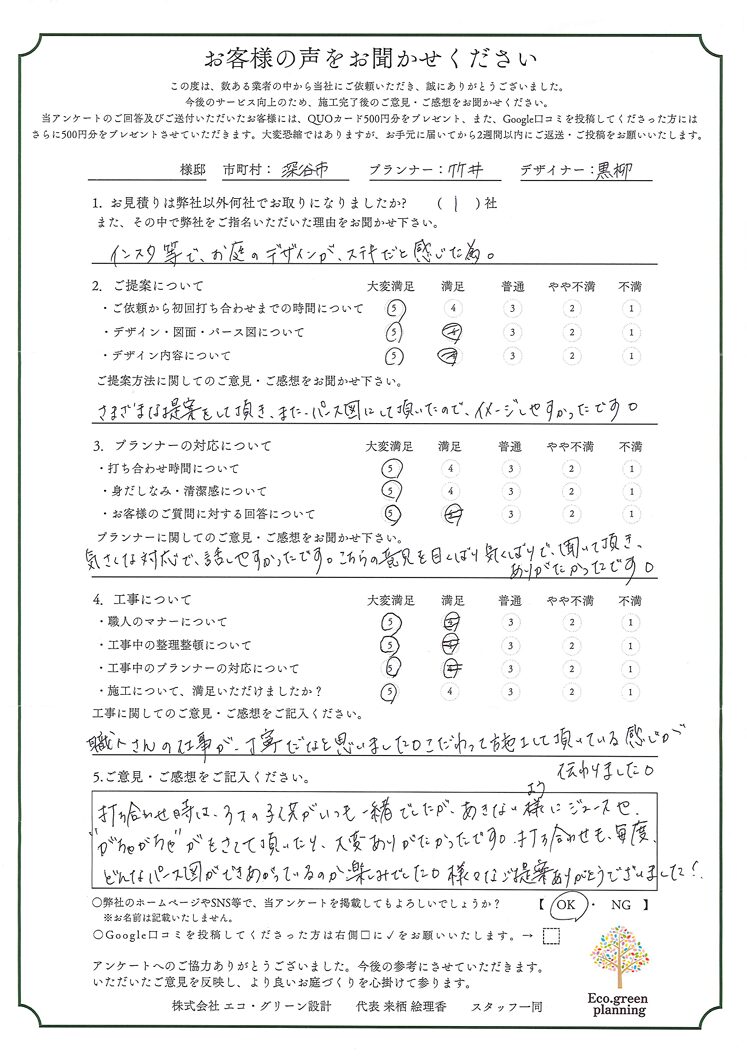 お客様の声をお聞かせください
この度は、数ある業者の中から当社にご依頼いただき、誠にありがとうございました。
今後のサービス向上のため、施工完了後のご意見・ご感想をお聞かせください。
当アンケートのご回答及びご送付いただいたお客様には、QUOカード500円分をプレゼント、また、Google口コミを投稿してくださった方には
さらに500円分をプレゼントさせていただきます。大変恐縮ではありますが、お手元に届いてから2週間以内にご返送・ご投稿をお願いいたします。
様邸 市町村： 深谷市 プランナー：竹井 デザイナー：黒柳
1. お見積りは弊社以外何社でお取りになりましたか? ( 1 )社
また、その中で弊社をご指名いただいた理由をお聞かせ下さい。
インスタ等で、お庭のデザインが、ステキだと感じた為。
2. ご提案について 大変満足 満足 普通 やや不満 不満
・ご依頼から初回打ち合わせまでの時間について 5 4 3 2 1
・デザイン・図面・パース図について 5 4 3 2 1
・デザイン内容について 5 4 3 2 1
ご提案方法に関してのご意見・ご感想をお聞かせ下さい。
さまざまな提案をして頂き、また、パース図にして頂いたので、イメージしやすかったです。
3. プランナーの対応について 大変満足 満足 普通 やや不満 不満
・打ち合わせ時間について 5 4 3 2 1
・身だしなみ・清潔感について 5 4 3 2 1
・お客様のご質問に対する回答について 5 4 3 2 1
プランナーに関してのご意見・ご感想をお聞かせ下さい。
気さくな対応で、話しやすかったです。こちらの意見を目くばり気くばりで、聞いて頂き、
ありがたかったです。
4. 工事について 大変満足 満足 普通 やや不満 不満
・職人のマナーについて 5 4 3 2 1
・工事中の整理整頓について 5 4 3 2 1
・工事中のプランナーの対応について 5 4 3 2 1
・施工について、満足いただけましたか？ 5 4 3 2 1
工事に関してのご意見・ご感想をご記入ください。
職人さんの仕事が、丁寧だなと思いました。こだわって施工して頂いている感じが
伝わりました。
5.ご意見・ご感想をご記入ください。
打ち合わせ時は、3才の子供がいつも一緒でしたが、あきない様にジュースや、
よう
"がちゃがちゃ"がをさせて頂いたり、大変ありがたかったです。打ち合わせも、毎度、
どんなパース図ができあがっているのか楽しみでした。様々なご提案ありがとうございました!
○弊社のホームページやSNS等で、当アンケートを掲載してもよろしいでしょうか？ 【 OK ・ NG 】
※お名前は記載いたしません。
○Google口コミを投稿してくださった方は右側□に✓をお願いいたします。→
アンケートへのご協力ありがとうございました。今後の参考にさせていただきます。
いただいたご意見を反映し、より良いお庭づくりを心掛けて参ります。
株式会社 エコ・グリーン設計 代表 来栖 絵理香 スタッフ一同
Eco.green
planning